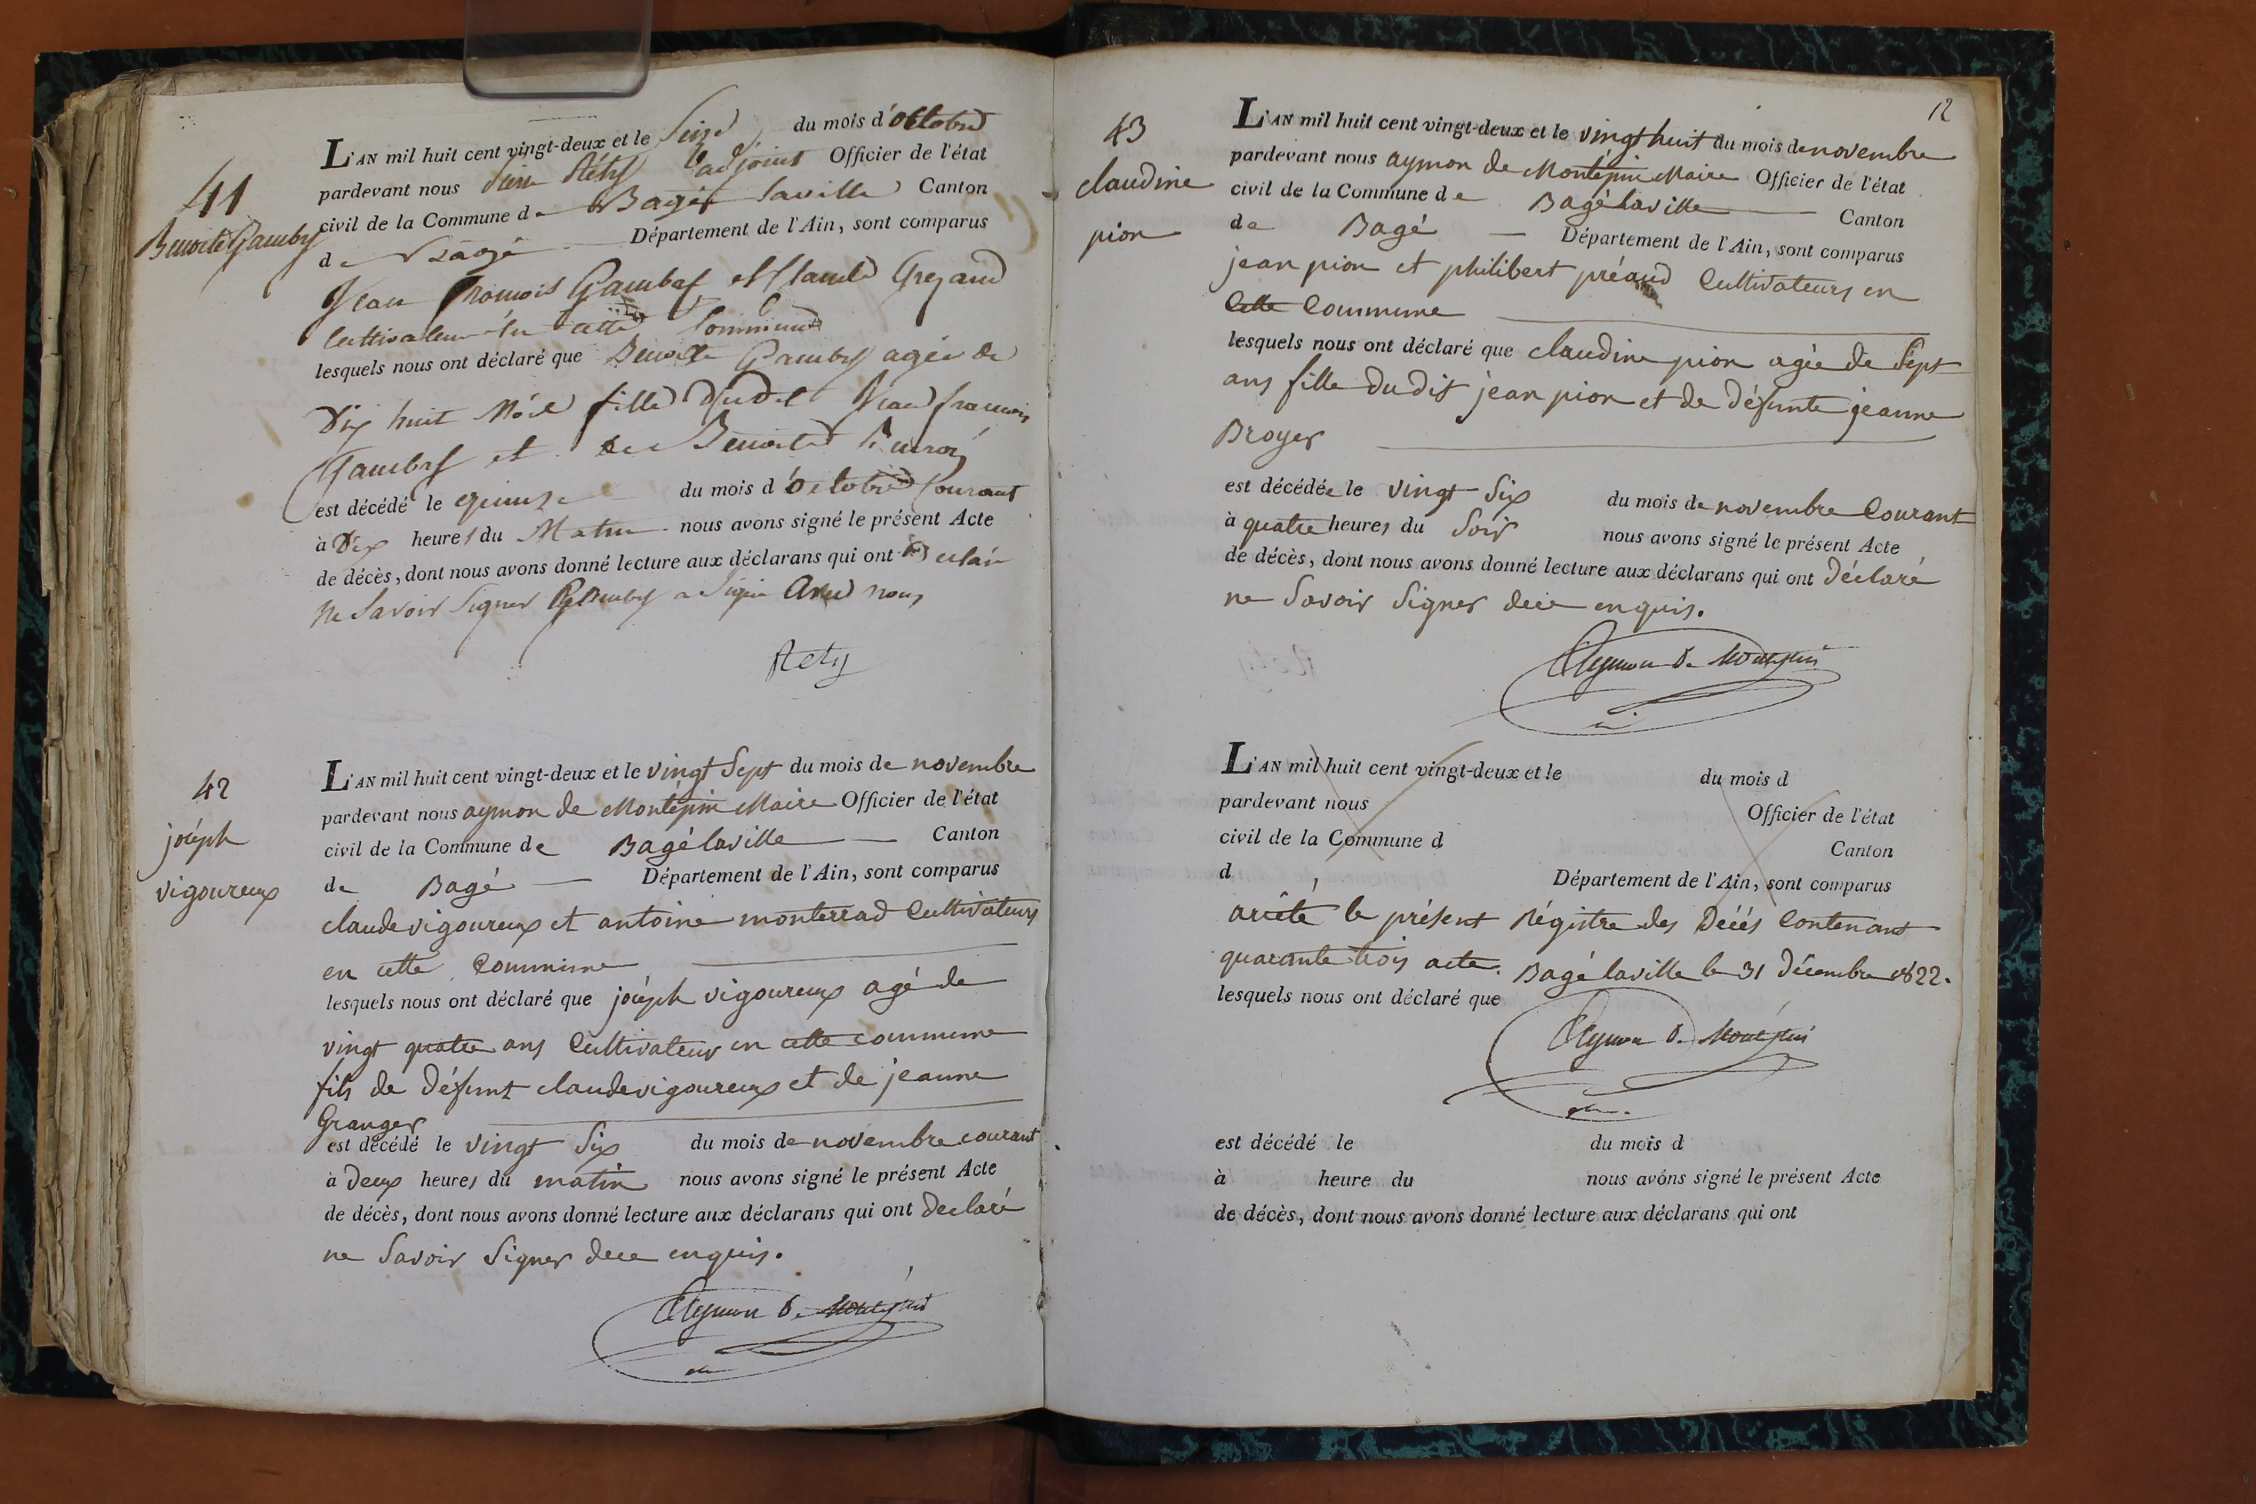 41
Benoite Gambey
L'AN mil huit cent vingt-deux et le Seize du mois d'octobre
pardevant nous Rety adjoint Officier de l'état
civil de la Commune de Bagé laville Canton
de Bagé Département de l'Ain, sont comparus
Jean françois Gambey et Claude
Cultivateur en cette Commune
lesquels nous ont déclaré que Benoite Gambey agée de
Dix huit Mois fille dudit Jean françois
Gambey et de Benoite
est décédé le quinze du mois d'octobre Courant
à Dix heures du Matin nous avons signé le présent Acte
de décès, dont nous avons donné lecture aux déclarans qui ont déclaré
ne Savoir Signer Gambey a Signé avec nous
Rety
42
joséph
vigoureux
L'AN mil huit cent vingt-deux et le vingt Sept du mois de novembre
pardevant nous aymon de Montépin Maire Officier de l'état
civil de la Commune de Bagé laville Canton
de Bagé Département de l'Ain, sont comparus
claude vigoureux et antoine monterrad Cultivateurs
en cette Commune
lesquels nous ont déclaré que joséph vigoureux agé de
vingt quatre ans Cultivateur en cette commune
fils de défunt claude vigoureux et de jeanne
Granger
est décédé le vingt Six du mois de novembre courant
à deux heures du matin nous avons signé le présent Acte
de décès, dont nous avons donné lecture aux déclarans qui ont declaré
ne Savoir Signer de ce enquis.
Aymon de Montépin
12
43
claudine
pion
L'AN mil huit cent vingt-deux et le vingt huit du mois de novembre
pardevant nous aymon de Montépin Maire Officier de l'état
civil de la Commune de Bagé laville Canton
de Bagé Département de l'Ain, sont comparus
jean pion et philibert préaud Cultivateurs en
Cette Commune
lesquels nous ont déclaré que claudine pion agée de Sept
ans fille dudit jean pion et de défunte jeanne
Broyer
est décédée le vingt Six du mois de novembre Courant
à quatre heures du Soir nous avons signé le présent Acte
de décès, dont nous avons donné lecture aux déclarans qui ont déclaré
ne Savoir Signer de ce enquis.
Aymon de Montépin
L'AN mil huit cent vingt-deux et le du mois d
pardevant nous Officier de l'état
civil de la Commune d Canton
d Département de l'Ain, sont comparus
arrêté le présent Régistre des Décés Contenant
quarante trois acte. Bagé laville le 31 décembre 1822.
lesquels nous ont déclaré que
Aymon de Montépin
est décédé le du mois d
à heure du nous avons signé le présent Acte
de décès, dont nous avons donné lecture aux déclarans qui ont